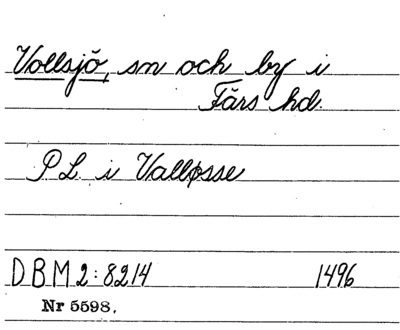 Vollsjö, sn och by i
Färs hd.
P L i Valløsse
DBM 2:8214 1496
Nr 5598.